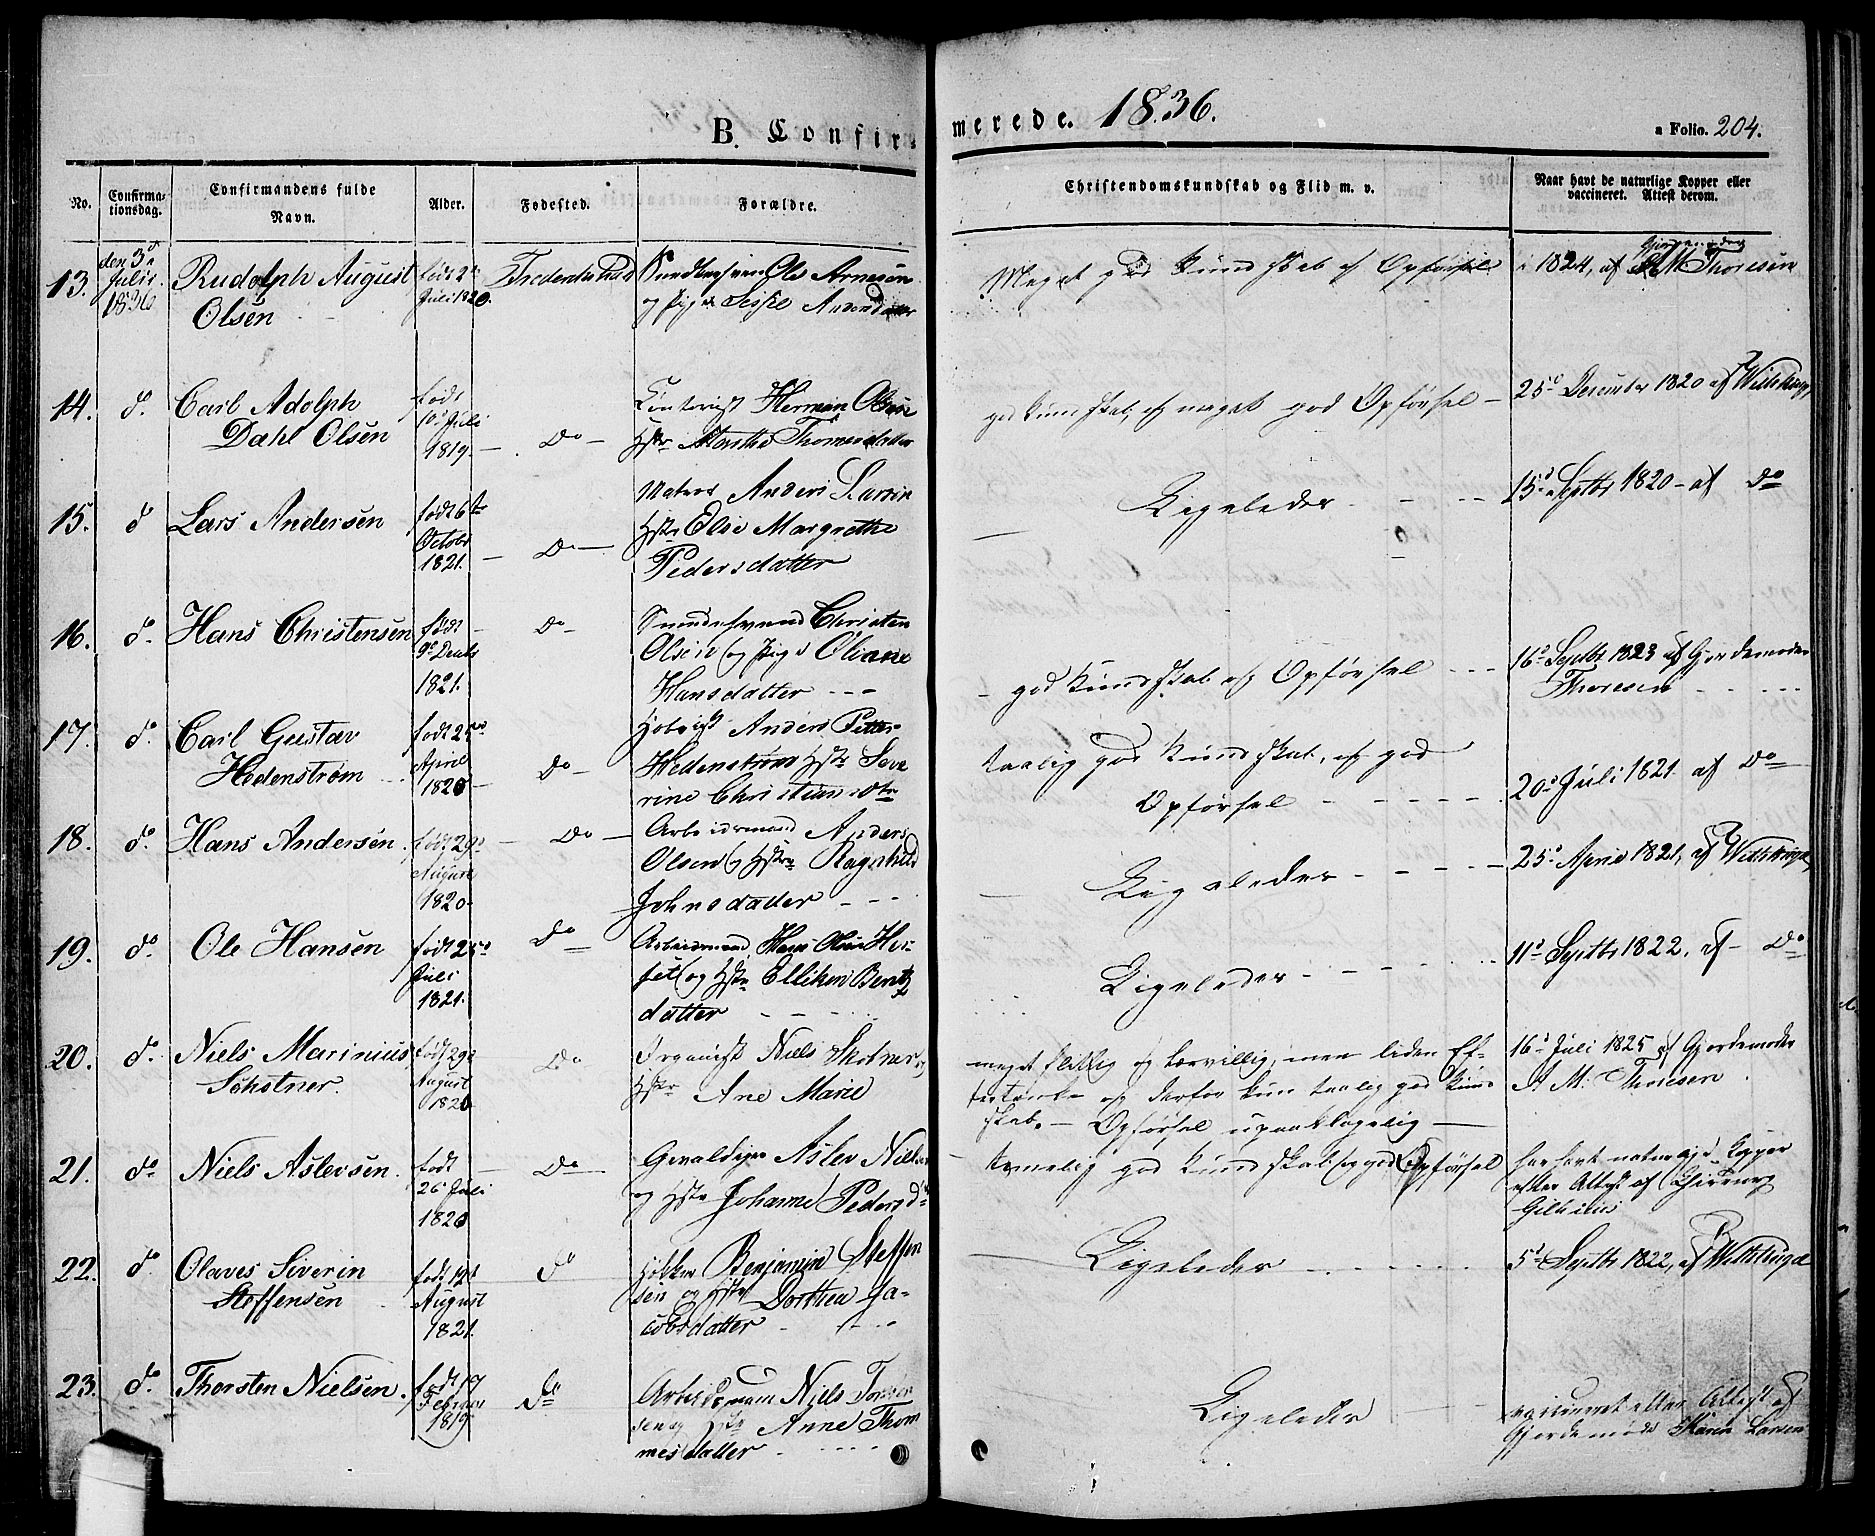 B. Confir
merede. 1836.
a Folio. 204.
No.
Confirma-
tionsdag.
Confirmandens fulde
Navn.
Alder.
Fødested.
Forældre.
Christendomskundskab og Flid m. v.
Naar havt de naturlige Kopper eller
vaccineret. Attest derom.
13.
den 3d
Juli
1836
Rudolph August
Olsen
født 2
Juli 1820.
Ole Arnesen
og Pige Sissel
Meget god Kundskab og Opførsel
i 1824, af M Thoresen
14.
do.
Carl Adolph
Dahl Olsen
født
10 Juli
1819.
Do
Herman Olsen
Hstr Marthe Thomesdatter
god Kundskab, og meget god Opførsel
25d December 1820 af
15.
do
Lars Andersen
født 6te
Octobr
1821.
Do
Matros Anders Larsen
Hstr Else Margrethe
Pedersdatter
Ligeledes
15d Septbr 1820 - af Do
16.
do.
Hans Christensen
født
9d Decbr
1821.
Do
Christen
Olsen og Pige Oliane
Hansdatter
god Kundskab og Opførsel
16d Septbr 1823 af Gjordemoder
Thoresen
17.
do.
Carl Gustav
Hedenstrøm
født 25d
April
1820
Do
Anders Petter
Hedenstrøm Hstr Seve
rine Christians Dtr
taalig god Kundskab, og god
Opførsel
20d Juli 1821 af Do
18.
do.
Hans Andersen.
født 29d
August
1820.
Do
Arbeidsmand Anders
Olsen og Hstr Ragnhild
Johnsdatter
Ligeledes
25d April 1821, af
19.
do.
Ole Hansen
født 25d
Juli
1821.
Do
Arbeidsmand Hans Olsen
og Hstr Elliken Bents
datter
Ligeledes
11d Septbr 1822, af Do
20.
do.
Niels Marinius
født 29d
August
1820
Do
Organist Niels
Hstr Ane Marie
meget flittig og lærvillig, men liden Ef-
tertanke og derfor kun taalig god Kund
skab. - Opførsel upaaklagelig
16d Juli 1825 af Gjordemoder
A M: Thoresen
21.
do
Niels Aslevsen.
født
26 Juli
1820
Do
Gevaldiger Aslev Niels
og Hstr Johanne Pedersd
temmelig god Kundskab og god Opførsel
har havt naturlige Kopper
efter Attest af Chirurg
22.
do
Olaves Siverin
Steffensen
født 12d
August
1821.
do
Høkker Benjamin Steffen
sen og Hstr Dorthea Ja-
cobsdatter
Ligeledes
5d Septbr 1822, af
23.
do.
Thorsten Nielsen.
født 17
Februar
1819
do
Arbeidsmand Niels
sen og Hstr Anne Thom
mesdatter
Ligeledes
vaccineret efter Attest af
Gjordemoder Karen Larsen